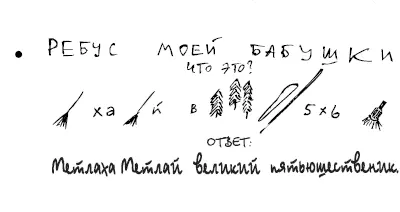 • РЕБУС МОЕЙ БАБУШКИ
ЧТО ЭТО?
ха й в 5×6
ОТВЕТ:
Метлаха Метлай великий пятьющественик.